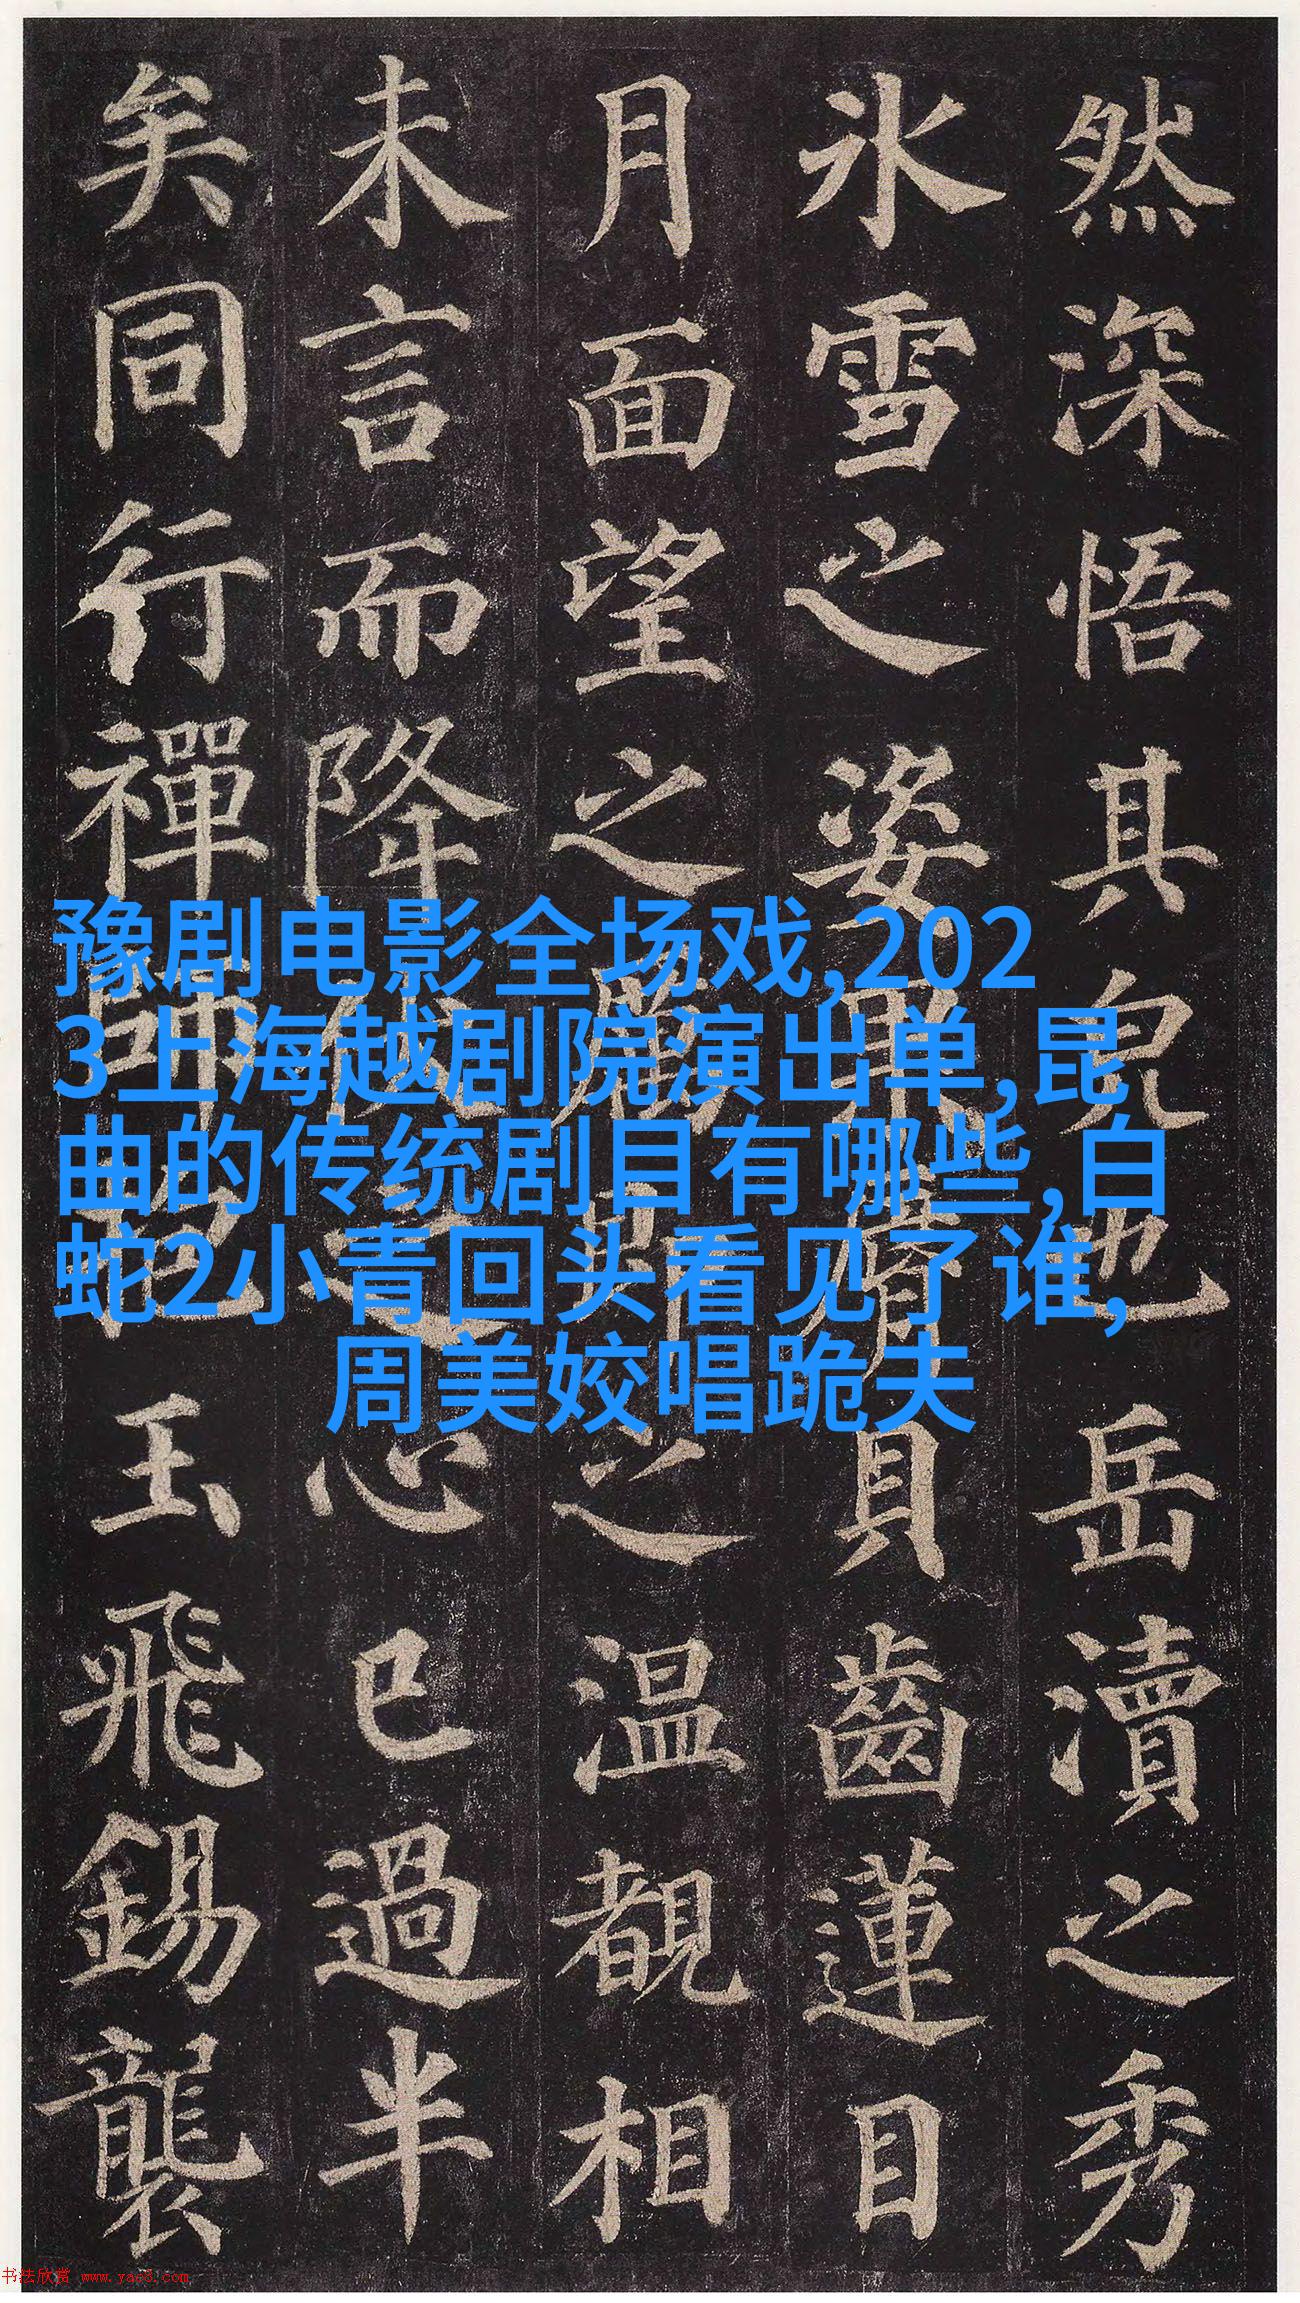 然深悟其皃也岳瀆之秀
氷雪之姿果脣貝齒蓮目
月面望之厲即之温覩相
未言而降伏之心已過半
矣同行禪師抱玉飛錫襲
豫剧电影全场戏,202
3上海越剧院演出单,昆
曲的传统剧目有哪些,白
蛇2小青回头看见了谁,
周美姣唱跪夫
书法欣赏 www.yac8.com